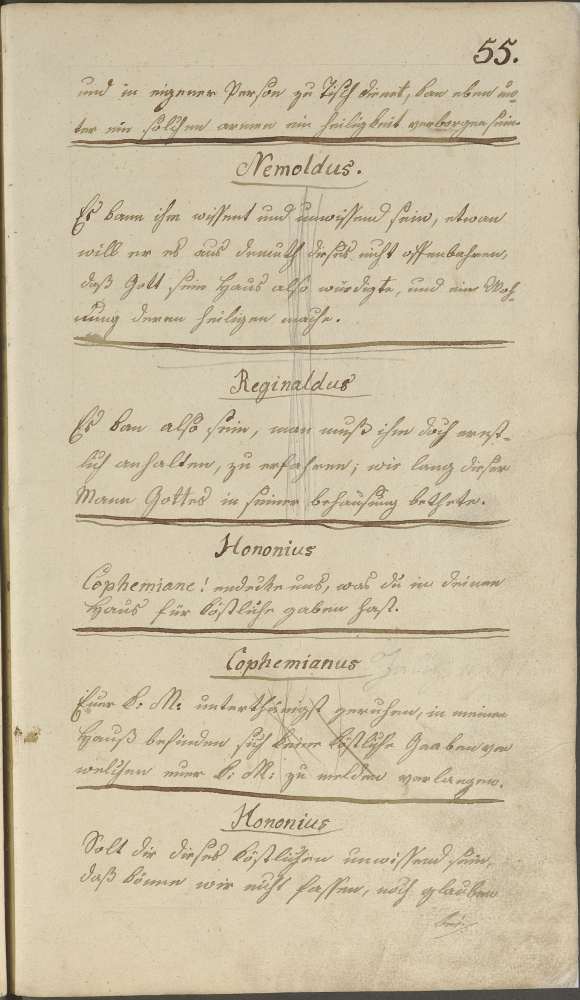 55.
und in eigener Person zu Tisch dienet, kan eben un-
ter ein solchen armen ein heiligkeit verborgen sein.
Nemoldus.
Es kann ihm wissent und unwissend sein, etwan
will er es aus demuth dieses nicht offenbahren,
daß Gott sein Haus also würdigte, und ein Woh-
nung deren heiligen mache.
Reginaldus
Es kan also sein, man muß ihm doch ernst-
lich anhalten, zu erfahren; wie lang dieser
Mann Gottes in seiner behausung bethete.
Hononius
Cophemiane! endecke uns, was du in deinen
Haus für köstliche gaben hast.
Cophemianus
Euer K: M: unterthänigst geruhen, in meinen
Hauß befinden sich keine köstliche Gaaben von
welchen euer K: M: zu melden verlangen.
Hononius
Solt dir dieses köstlichen unwissend sein,
daß könne wir nicht fassen, noch glauben